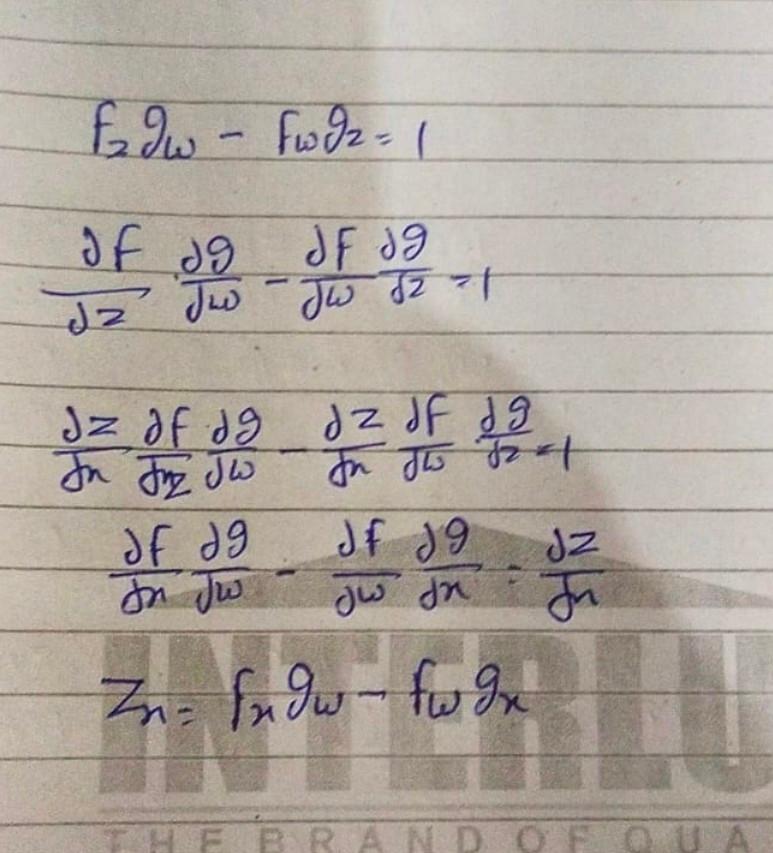 f_z g_w - f_w g_z = 1
∂f/∂z ∂g/∂w - ∂f/∂w ∂g/∂z = 1
∂z/∂x ∂f/∂z ∂g/∂w - ∂z/∂x ∂f/∂w ∂g/∂z = 1
∂f/∂x ∂g/∂w - ∂f/∂w ∂g/∂x = ∂z/∂x
z_x = f_x g_w - f_w g_x
INTERLU
THE BRAND OF QUA